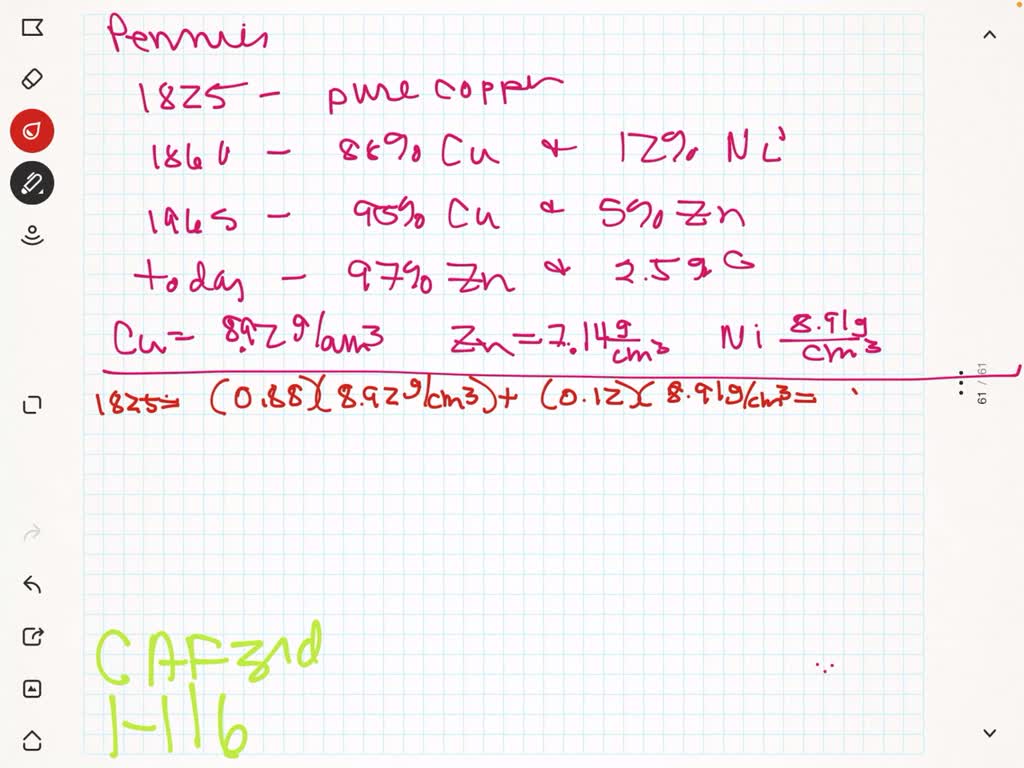 Pennies
1825 - pure copper
1860 - 88% Cu & 12% Ni
1965 - 95% Cu & 5% Zn
today - 97% Zn & 2.5%
Cu = 8.92 g/cm3 Zn = 7.14 g/cm3 Ni 8.91g/cm3
1825= (0.88)(8.92g/cm3)+ (0.12)(8.91g/cm3=
CAF
1-116
61 / 61